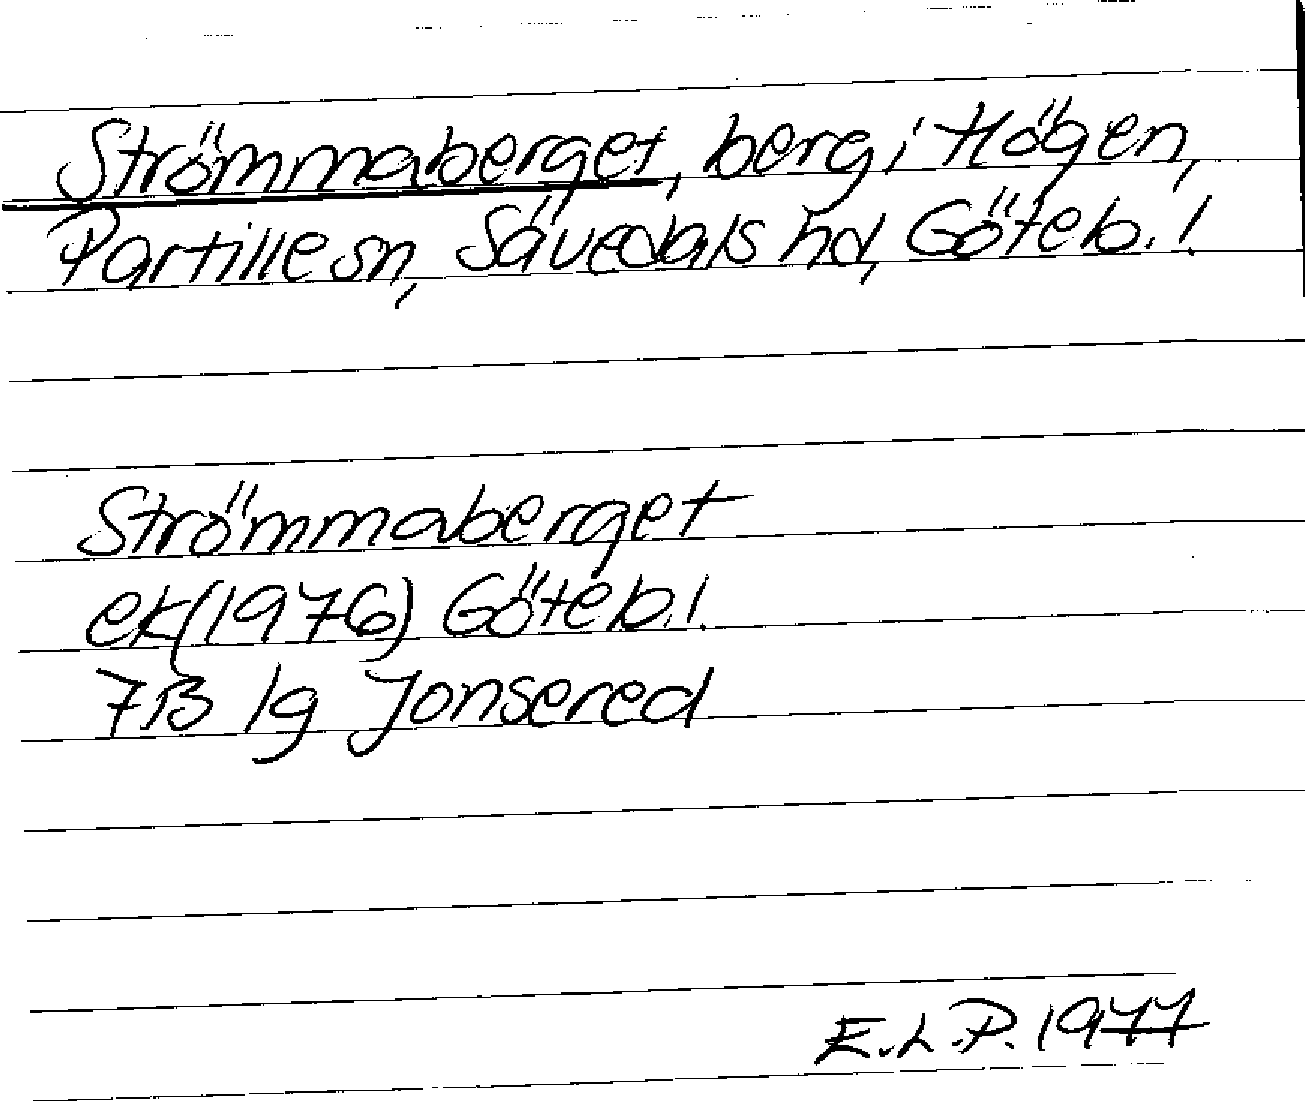 Strömmaberget, berg i Högen,
Partille sn, Sävedals hd, Göteb. l.
Strömmaberget
ek (1976) Göteb. l.
7B 1g Jonsered
E.L.P. 1977